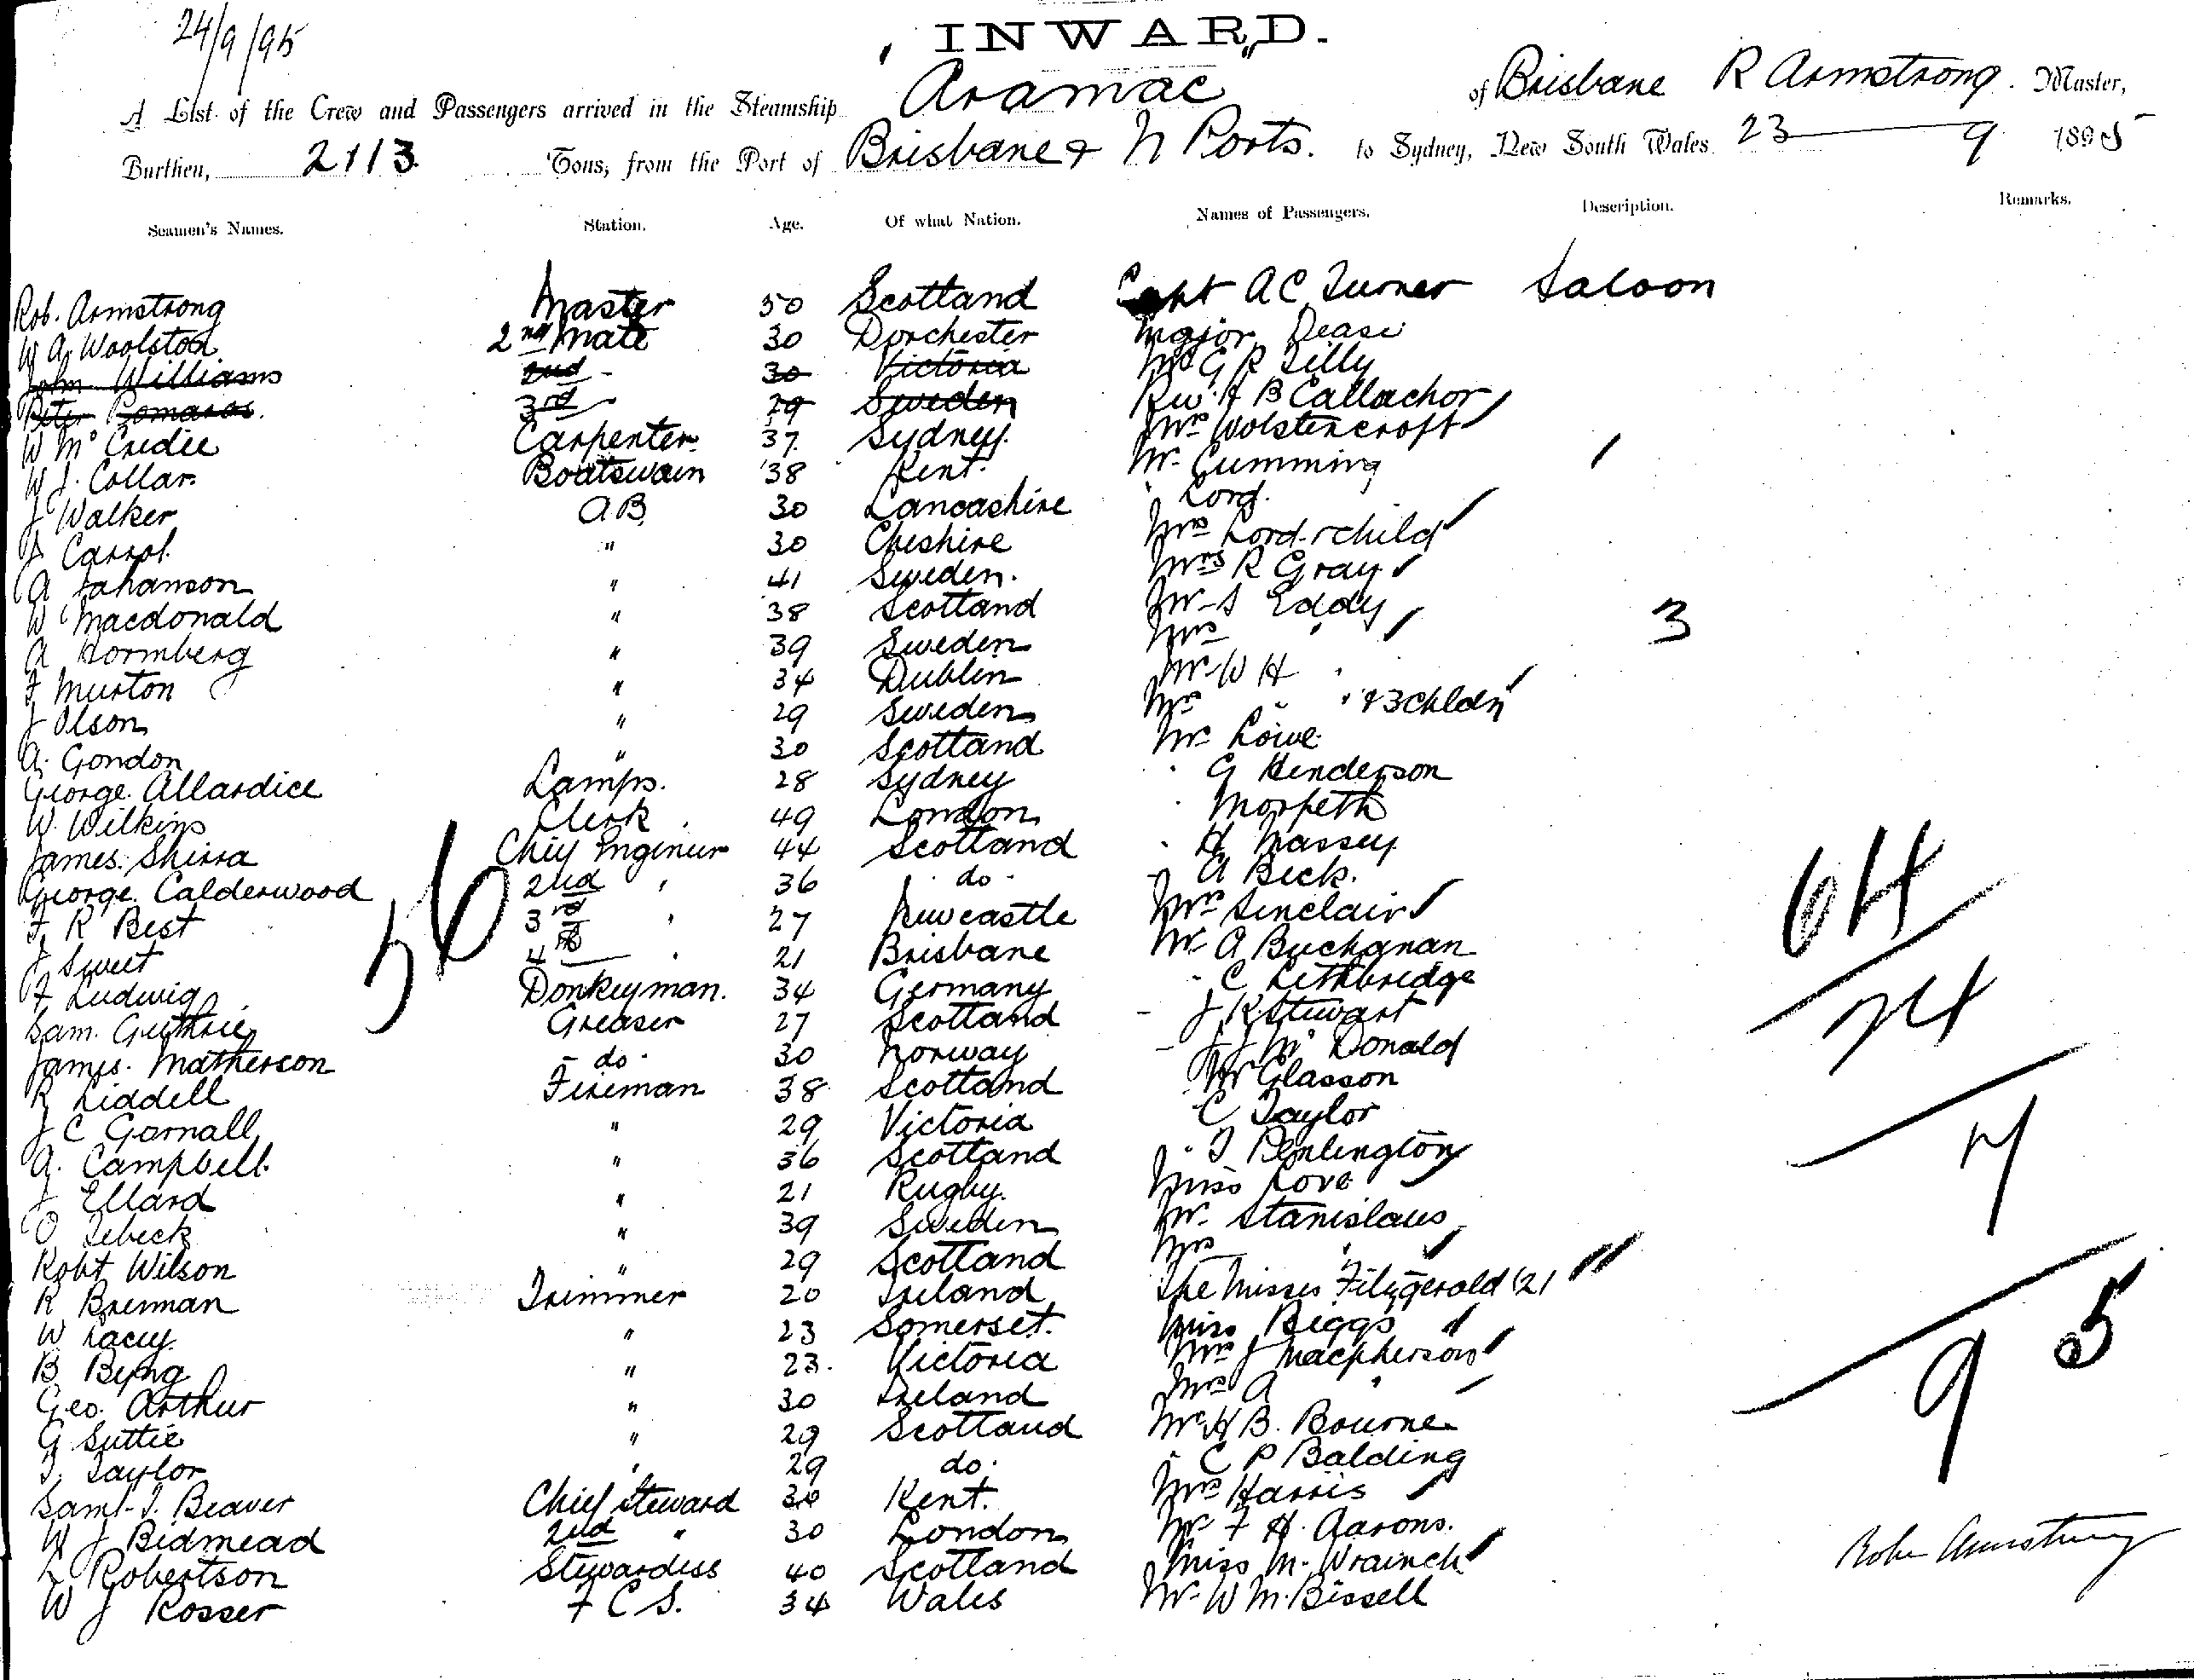 24/9/95
INWARD.
A List of the Crew and Passengers arrived in the Steamship "Aramac" of Brisbane R Armstrong. Master,
Burthen, 2113 Tons, from the Port of Brisbane & N Ports. to Sydney, New South Wales 23 9 1895
Seamen's Names. Station. Age. Of what Nation. Names of Passengers. Description. Remarks.
Rob. Armstrong Master 50 Scotland Capt A C Turner Saloon
W A Woolston 2nd Mate 30 Dorchester Major Dease
John Williams 2nd 30 Victoria Mr G R Silly
Peter 3rd 29 Sweden Rev. H B Callachor
W McCredie Carpenter 37 Sydney Mrs Wolstencroft
W J. Collar Boatswain 38 Kent. Mr. Cumming
J Walker AB 30 Lancashire " Lord.
J Carrol " 30 Cheshire Mrs Lord & child
A Johanson " 41 Sweden. Mrs R Gray
W Macdonald " 38 Scotland Mr S Eddy 3
A Hormberg " 39 Sweden Mrs "
F Murton " 34 Dublin Mr W H "
J Olson " 29 Sweden Mrs " " & 3 chldn
A. Gordon " 30 Scotland Mr. Lowe
George Allardice Lamps. 28 Sydney " G Henderson
W. Wilkins Clerk 49 London " Morpeth
James. Shirra Chief Engineer 44 Scotland " H Massey
George Calderwood 2nd " 36 do " A Beck.
F. R Best 3rd " 27 Newcastle Mrs Sinclair
J Sweet 4th " 21 Brisbane Mr A Buchanan
F Ludwig Donkeyman. 34 Germany " C Lethbridge
Sam. Guthrie Greaser 27 Scotland - J K Stewart
James. Matherson - do - 30 Norway - J J McDonald
R Liddell Fireman 38 Scotland Mr Glasson
J C Garnall " 29 Victoria " C Taylor
A. Campbell " 36 Scotland " T Penlington
J Ellard " 21 Rugby. Miss Love
O Sebeck " 39 Sweden Mr. Stanislaus
Robt Wilson " 29 Scotland Mrs "
R Brennan Trimmer 20 Ireland The Misses Fitzgerald (2)
W. Lacey " 23 Somerset. Miss Biggs
B Byng " 23. Victoria Mrs J Macpherson
Geo. Arthur " 30 Ireland Mrs A "
G Suttie " 29 Scotland Mr H B. Bourne
T. Taylor " 29 do. " C P Balding
Saml. T. Beaver Chief Steward 30 Kent. Mrs Harris
W J Bidmead 2nd " 30 London Mr F H. Aarons.
L Robertson Stewardess 40 Scotland Miss M. Wrainch
W J Rosser F C S. 34 Wales Mr. W M. Bissell
56
64
24
4
9 5
Robt Armstrong